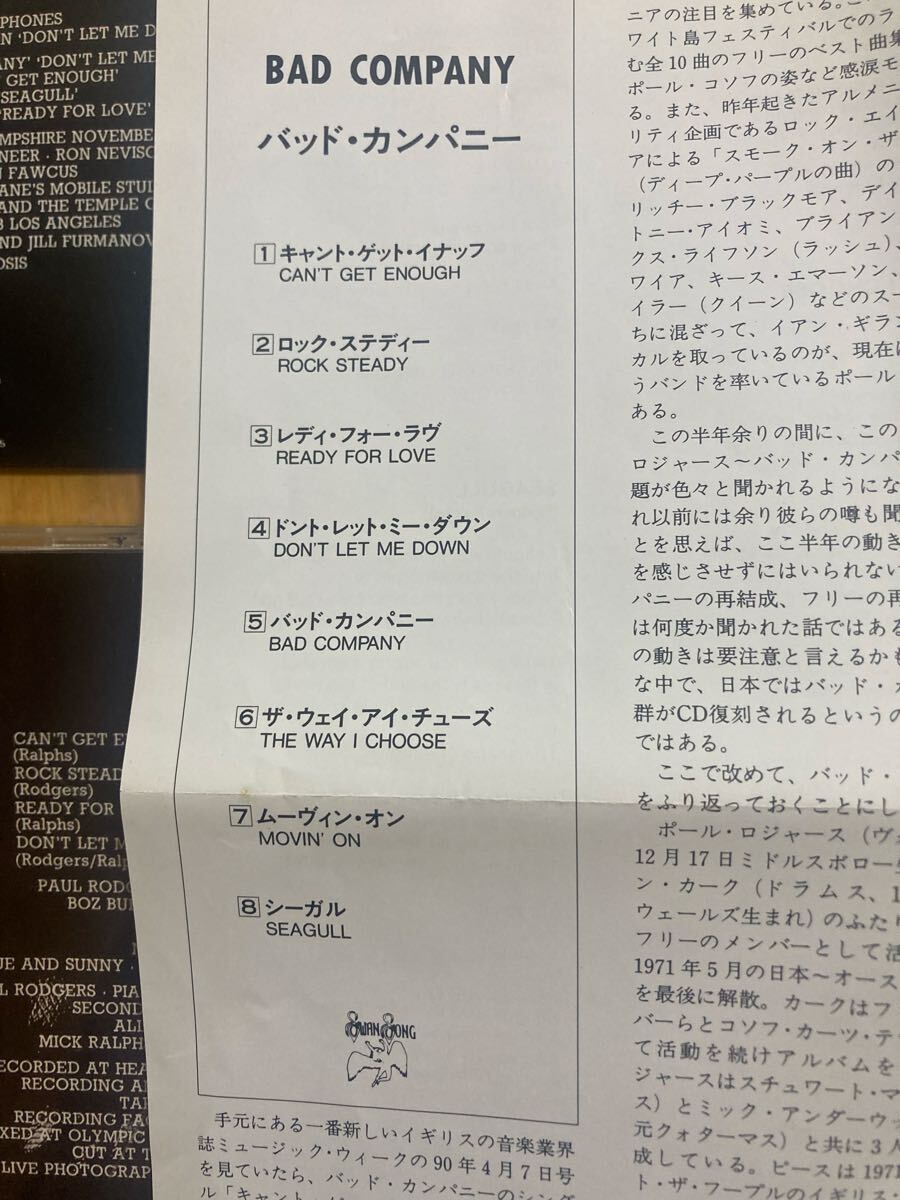 PHONES
N 'DON'T LET ME D
ANY' 'DON'T LET ME
GET ENOUGH'
'SEAGULL'
'READY FOR LOVE'
MPSHIRE NOVEMBE
NEER · RON NEVISO
N FAWCUS
ANE'S MOBILE STUI
AND THE TEMPLE C
LOS ANGELES
ND JILL FURMANOV
OSIS
CAN'T GET E
(Ralphs)
ROCK STEAD
(Rodgers)
READY FOR
(Ralphs)
DON'T LET M
(Rodgers/Ralp
PAUL RODG
BOZ BU
UE AND SUNNY ·
L RODGERS · PIA
SECOND
ALI
MICK RALPH
ECORDED AT HEA
RECORDING A
TA
RECORDING FAC
XED AT OLYMPIC
CUT AT T
LIVE PHOTOGRAP
BAD COMPANY
バッド・カンパニー
1 キャント・ゲット・イナッフ
CAN'T GET ENOUGH
2 ロック・ステディー
ROCK STEADY
3 レディ・フォー・ラヴ
READY FOR LOVE
4 ドント・レット・ミー・ダウン
DON'T LET ME DOWN
5 バッド・カンパニー
BAD COMPANY
6 ザ・ウェイ・アイ・チューズ
THE WAY I CHOOSE
7 ムーヴィン・オン
MOVIN' ON
8 シーガル
SEAGULL
SWAN SONG
手元にある一番新しいイギリスの音楽業界
誌ミュージック・ウィークの90年4月7日号
を見ていたら、バッド・カンパニーのシング
ル「キャント・
ニアの注目を集めている。
ワイト島フェスティバルでのラ
む全10曲のフリーのベスト曲集
ポール・コソフの姿など感涙モ
る。また、昨年起きたアルメニ
リティ企画であるロック・エイ
アによる「スモーク・オン・ザ
（ディープ・パープルの曲）の
リッチー・ブラックモア、デイ
トニー・アイオミ、ブライアン
クス・ライフソン（ラッシュ）、
ワイア、キース・エマーソン、
イラー（クイーン）などのスー
ちに混ざって、イアン・ギラン
カルを取っているのが、現在は
うバンドを率いているポール
ある。
この半年余りの間に、この
ロジャース〜バッド・カンパ
題が色々と聞かれるようにな
れ以前には余り彼らの噂も聞
とを思えば、ここ半年の動き
を感じさせずにはいられない
パニーの再結成、フリーの再
は何度か聞かれた話ではある
の動きは要注意と言えるかも
な中で、日本ではバッド・カ
群がCD復刻されるというの
ではある。
ここで改めて、バッド・
をふり返っておくことにし
ポール・ロジャース（ヴォ
12月17日ミドルスボロー生
ン・カーク（ドラムス、1
ウェールズ生まれ）のふたり
フリーのメンバーとして活
1971年5月の日本〜オース
を最後に解散。カークはフ
バーらとコソフ・カーツ・テ
て活動を続けアルバムを
ジャースはスチュワート・マ
ス）とミック・アンダーウ
元クォーターマス）と共に3人
成している。ピースは1971
ト・ザ・フープルのイギリス・